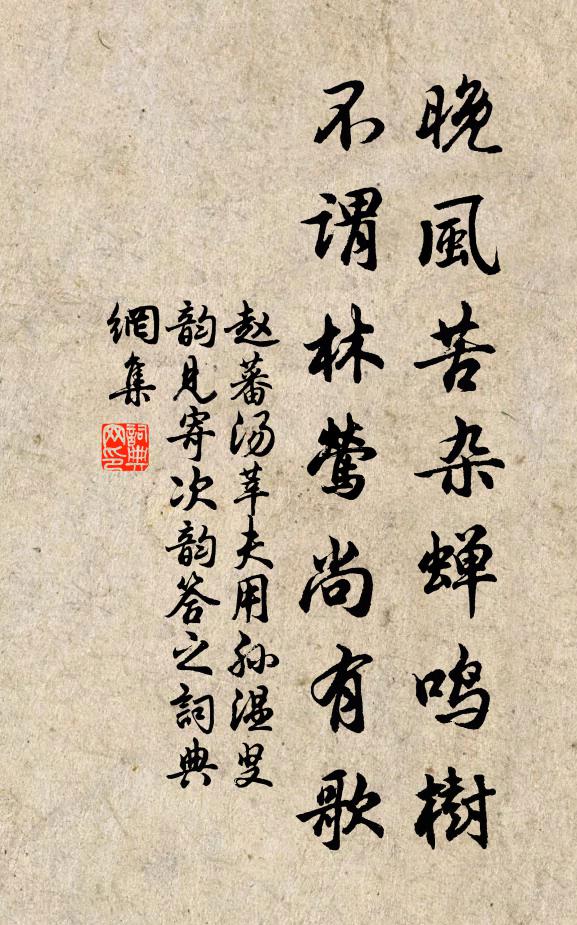 晚風苦杂蝉鸣樹
不谓林莺尚有歌
赵蕃汤莘夫用孙温叟
韵见寄次韵答之詞典
網集
詞典网印